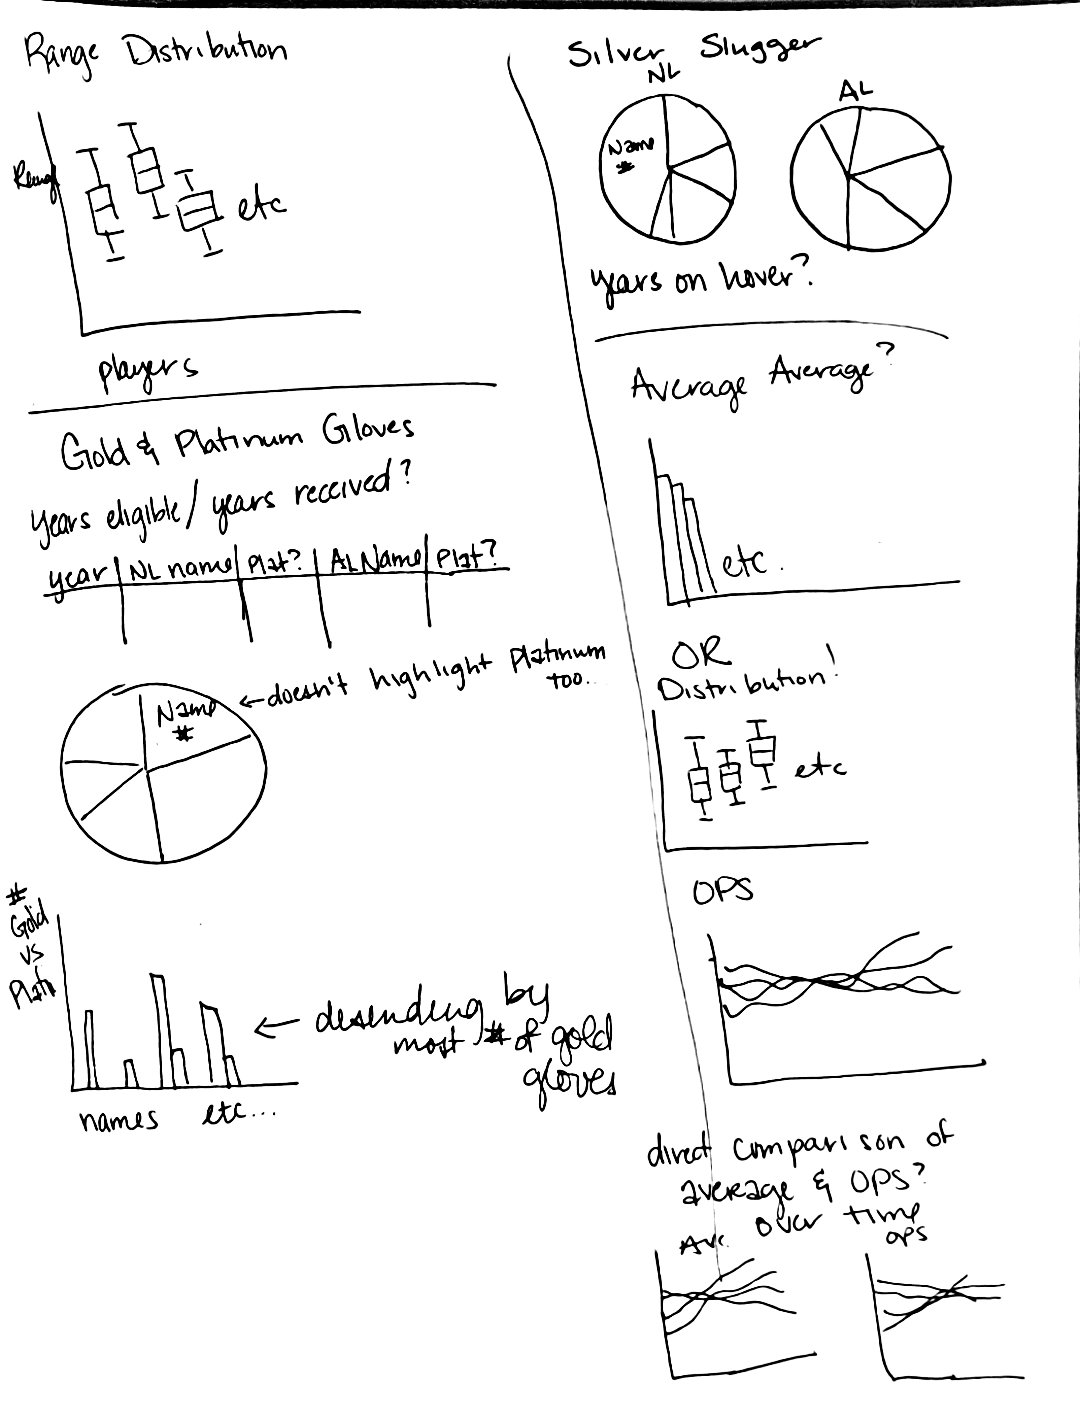 Range Distribution
Range
etc
players
Gold & Platinum Gloves
years eligible / years received?
year | NL name | Plat? | AL Name | Plat?
← doesn't highlight Platinum
too..
Name
#
#
Gold
vs
Platn
← desending by
most # of gold
gloves
names etc...
Silver Slugger
NL
AL
Name
#
years on hover?
Average Average?
etc.
OR
Distribution!
etc
OPS
direct comparison of
average & OPS?
over time
Ave.
OPS